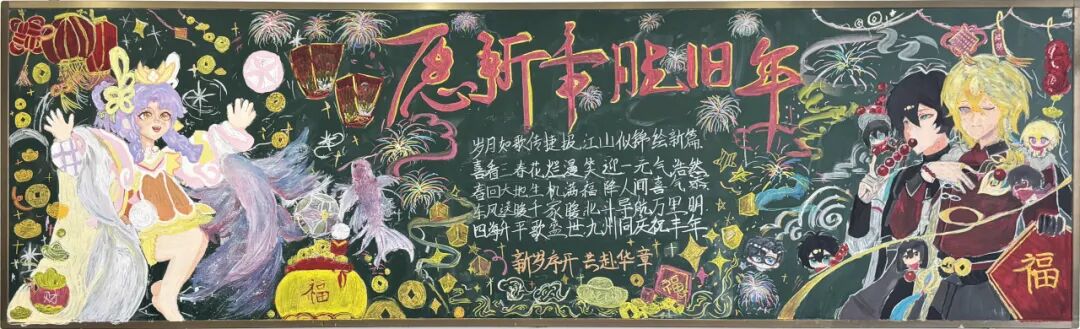 愿新年胜旧年
岁月如歌传捷报江山似锦绘新篇
喜看三春花烂漫笑迎一元气浩然
春回大地生机满福降人间喜气
东风送暖千家暖北斗导航万里明
四海升平歌盛世九州同庆祝丰年
新岁序开 共赴华章
福
财
福
福